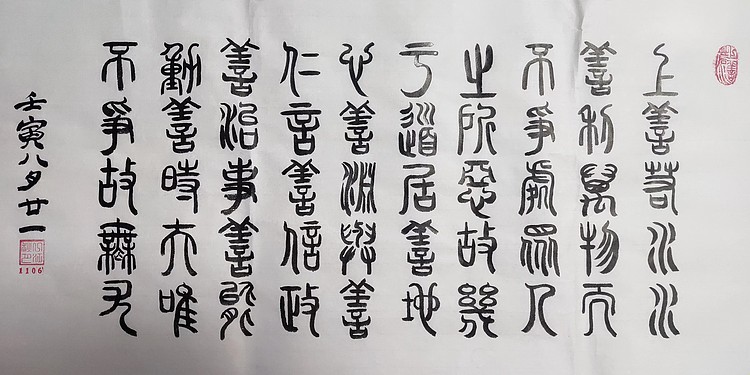 上善若水水
善利萬物而
不爭處眾人
之所惡故幾
于道居善地
心善淵與善
仁言善信政
善治事善能
動善時夫唯
不爭故無尤
壬寅八月廿一
1106